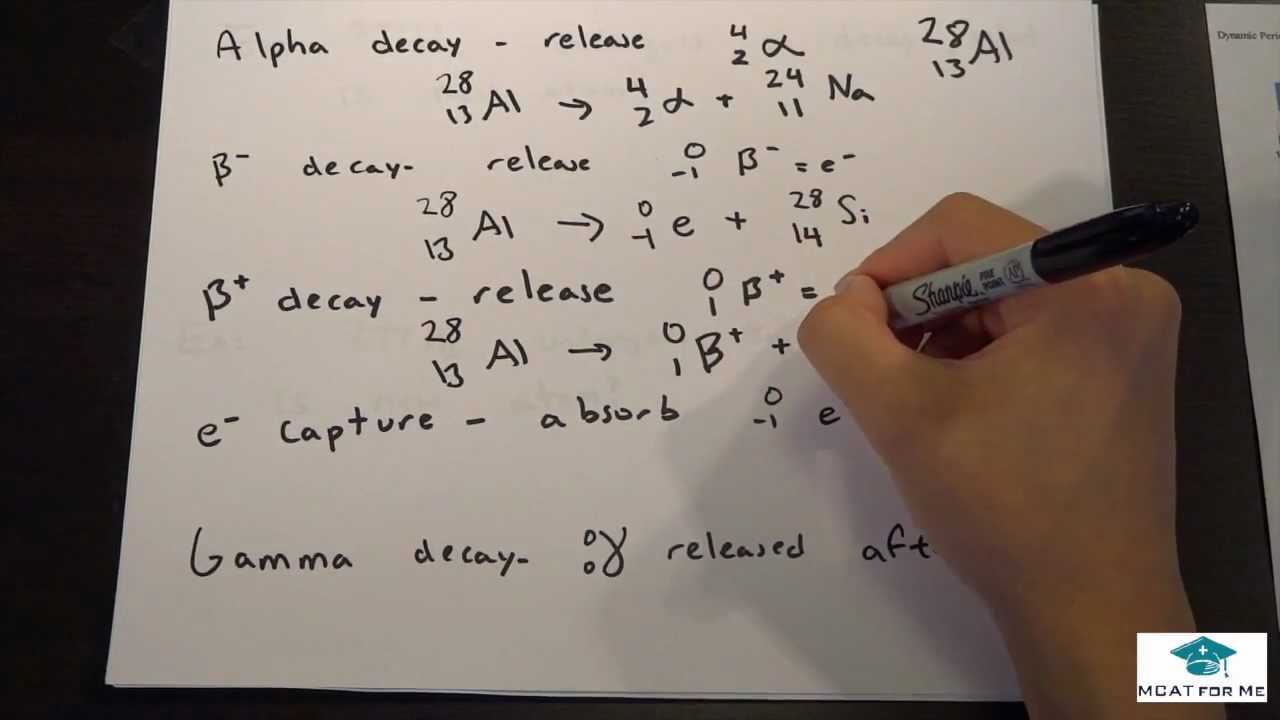 Alpha decay - release ⁴₂α ²⁸₁₃Al
²⁸₁₃Al → ⁴₂α + ²⁴₁₁Na
β⁻ decay- release ⁰₋₁β⁻ = e⁻
²⁸₁₃Al → ⁰₋₁e + ²⁸₁₄Si
β⁺ decay - release ⁰₁β⁺ =
²⁸₁₃Al → ⁰₁β⁺ +
e⁻ capture - absorb ⁰₋₁e
Gamma decay- ⁰₀γ released
Sharpie
Dynamic
MCAT FOR ME